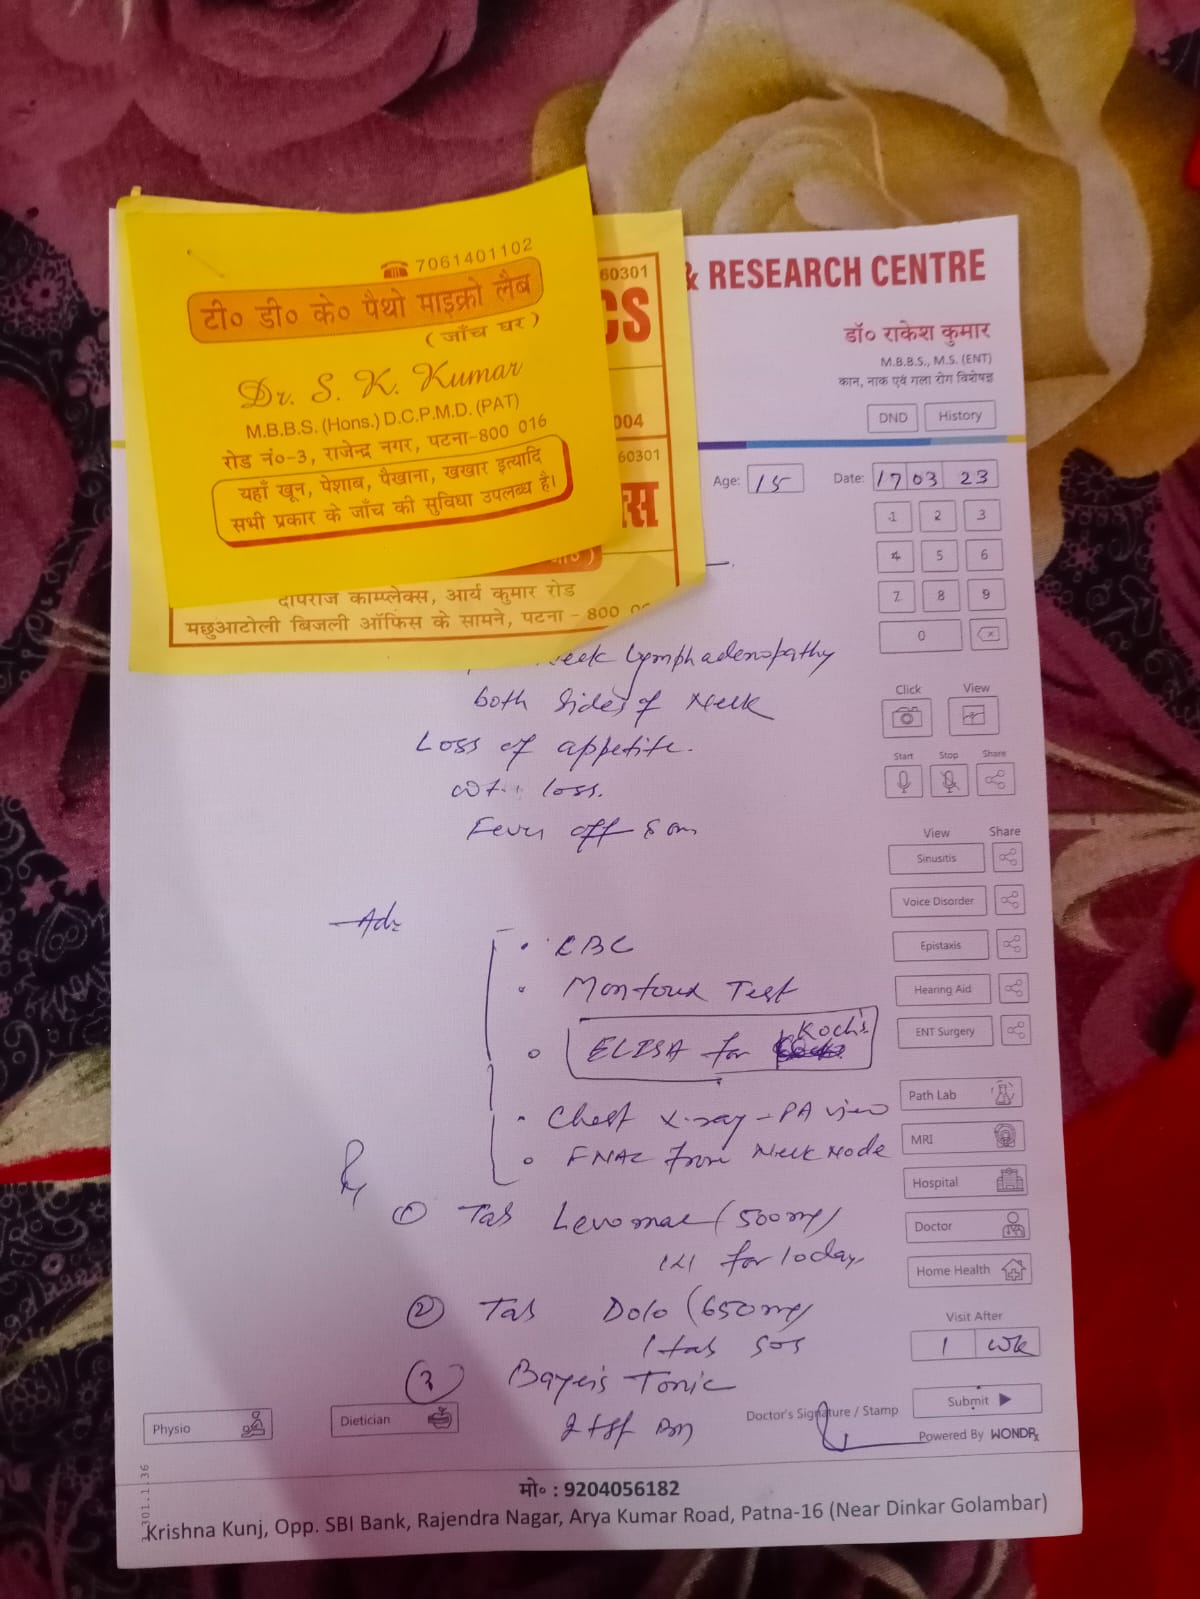 7061401102
टी० डी० के० पैथो माइक्रो लैब
(जाँच घर)
Dr. S. K. Kumar
M.B.B.S. (Hons.) D.C.P.M.D. (PAT)
रोड नं०-3, राजेन्द्र नगर, पटना-800 016
यहाँ खून, पेशाब, पैखाना, खखार इत्यादि
सभी प्रकार के जाँच की सुविधा उपलब्ध है।
60301
CS
004
60301
काम्प्लेक्स, आर्य कुमार रोड
मछुआटोली बिजली ऑफिस के सामने, पटना - 800
& RESEARCH CENTRE
डॉ० राकेश कुमार
M.B.B.S., M.S. (ENT)
कान, नाक एवं गला रोग विशेषज्ञ
DND History
Age: 15 Date: 17 03 23
1 2 3
4 5 6
7 8 9
0
Lymphadenopathy
both sides of Neck
Loss of appetite.
wt. loss.
Fever off & on
Click View
Start Stop Share
View Share
Sinusitis
Voice Disorder
Epistaxis
Hearing Aid
ENT Surgery
Path Lab
MRI
Hospital
Doctor
Home Health
Adv
CBC
Montoux Test
ELISA for Koch's
Chest X-ray - PA view
FNAC from Neck Node
Rx
① Tab Levomac (500mg)
1x1 for 10 day
② Tab Dolo (650mg)
1 tab sos
③ Bayer's Tonic
2 tsf
Visit After
1 wk
Submit
Doctor's Signature / Stamp
Powered By WONDRx
Physio
Dietician
मो० : 9204056182
Krishna Kunj, Opp. SBI Bank, Rajendra Nagar, Arya Kumar Road, Patna-16 (Near Dinkar Golambar)